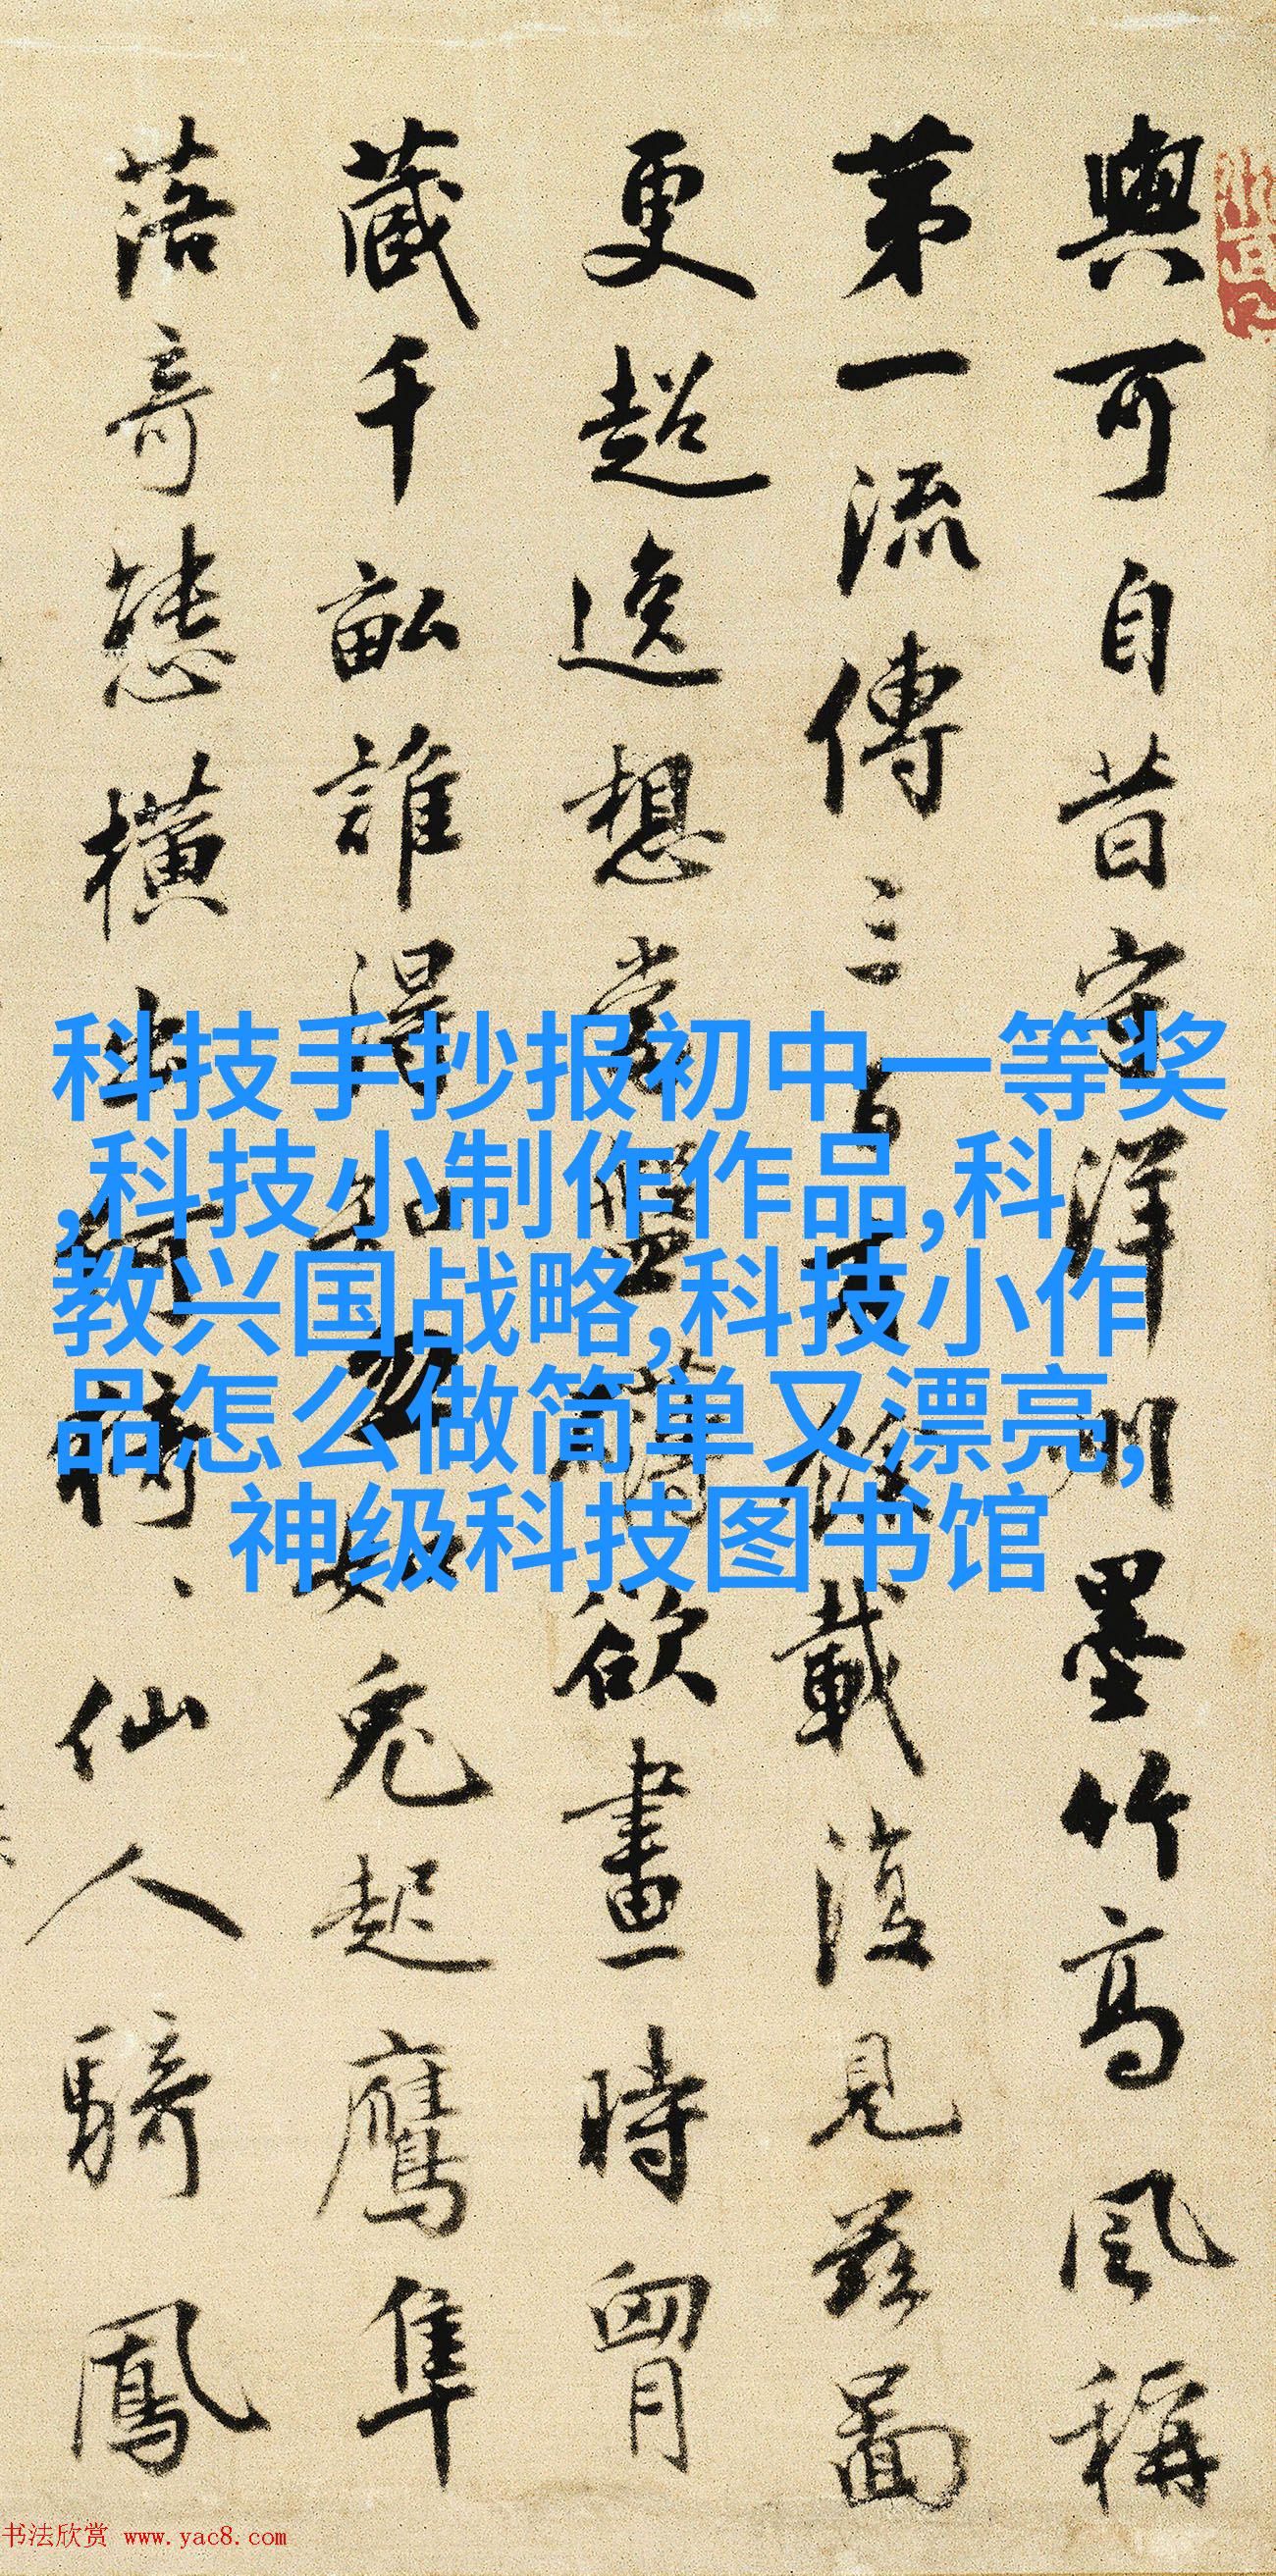 與可自昔守洋州墨竹高風稱
第一流傳三百有餘載復見茲圖
更超逸想當盤礴欲畫時胷
藏千畝誰得知忽如兔起鷹隼
落奇態橫出何猗〻仙人騎鳳
科技手抄报初中一等奖
,科技小制作作品,科
教兴国战略,科技小作
品怎么做简单又漂亮,
神级科技图书馆
书法欣赏 www.yac8.com